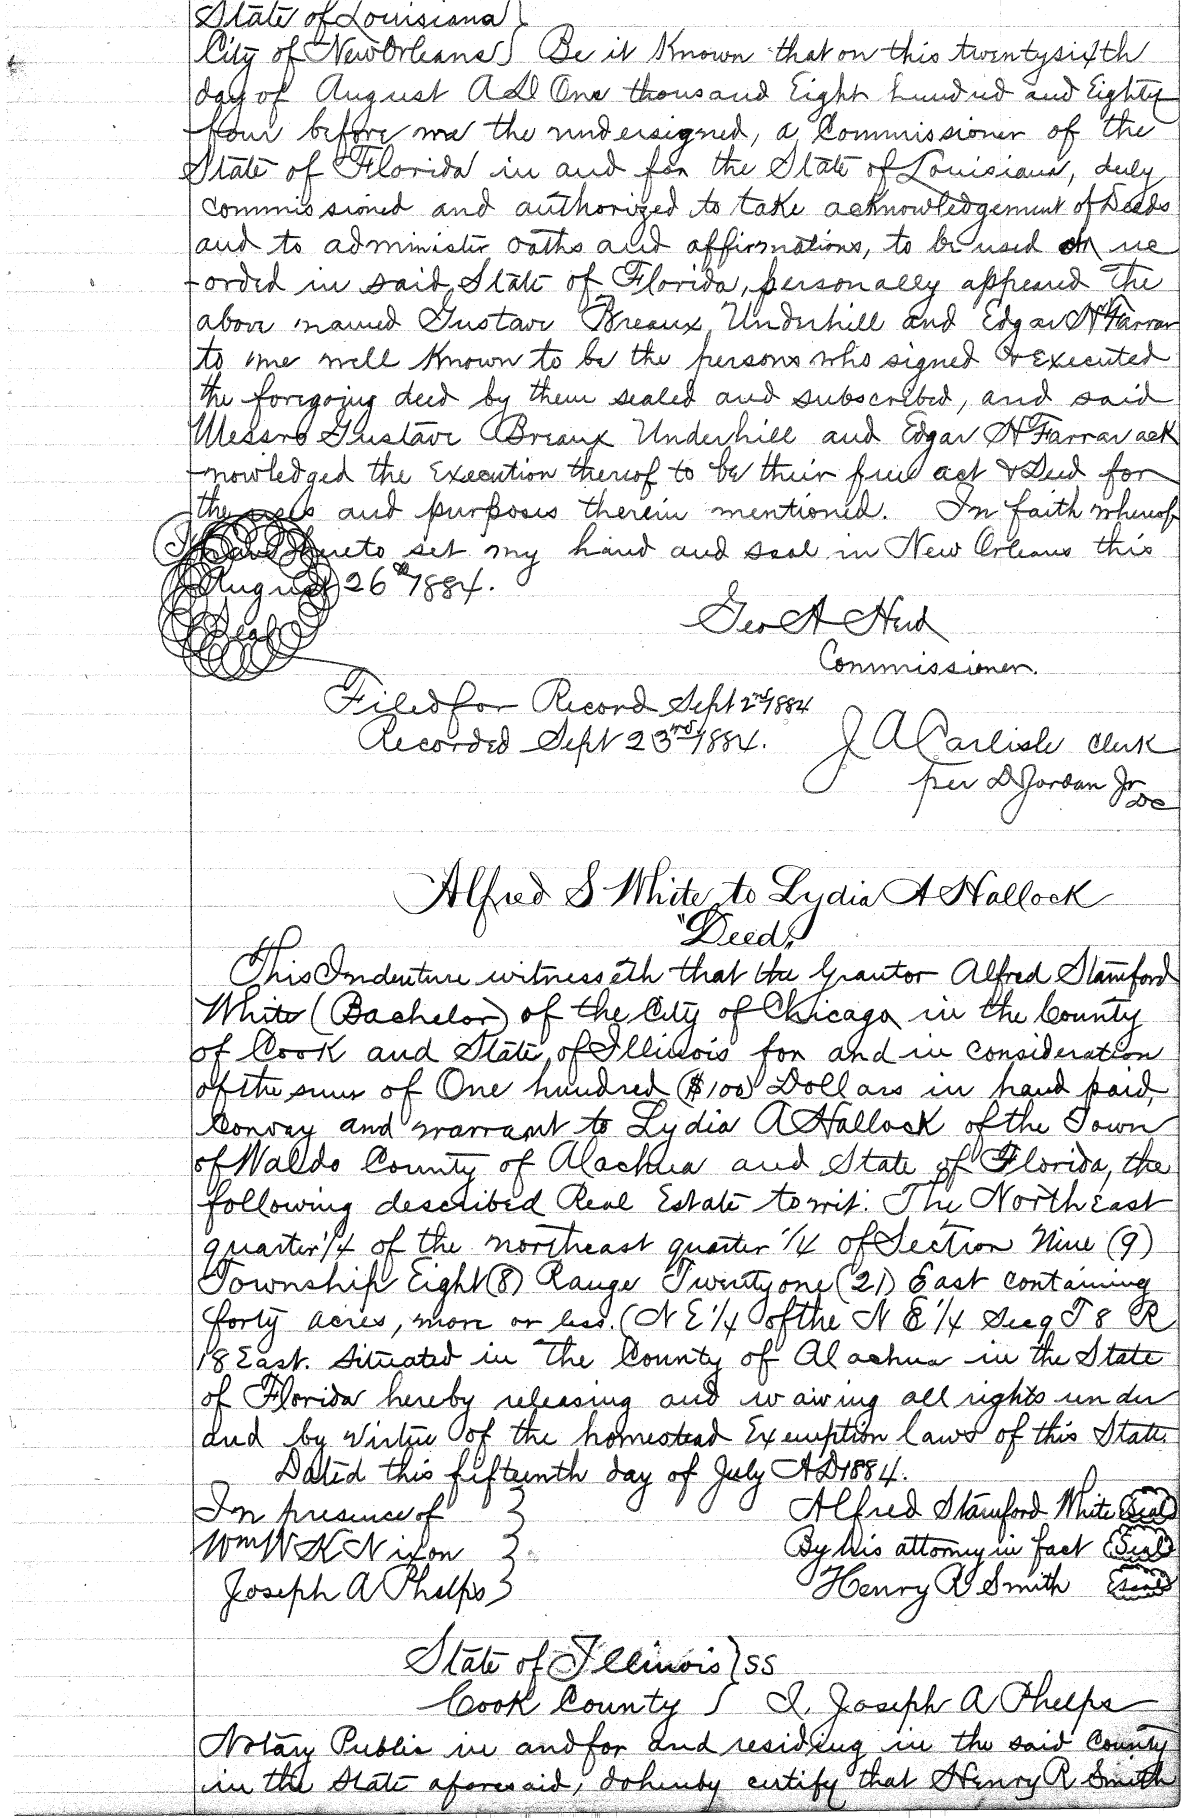 State of Louisiana }
City of New Orleans } Be it Known that on this twentysixth
day of August AD One thousand Eight hundred and Eighty
four before me the undersigned, a Commissioner of the
State of Florida in and for the State of Louisiana, duly
commissioned and authorized to take acknowledgement of Deeds
and to administer oaths and affirmations, to be used or re
-orded in said State of Florida, personally appeared the
above named Gustave Breaux Underhill and Edgar H Farrar
to me well Known to be the persons who signed & Executed
the foregoing deed by them sealed and subscribed, and said
Messrs Gustave Breaux Underhill and Edgar H Farrar ack
-nowledged the Execution thereof to be their free act & Deed for
the uses and purposes therein mentioned. In faith whereof
I hereto set my hand and seal in New Orleans this
August 26th 1884.
Seal
Geo A Hero
Commissioner.
Filed for Record Sept 2nd 1884
Recorded Sept 23rd 1884. J A Carlisle Clerk
per D Jordan Jr
DC
Alfred S White to Lydia A Hallock
"Deed"
This Indenture witnesseth that the Grantor Alfred Stamford
White (Bachelor) of the City of Chicago in the County
of Cook and State of Illinois for and in consideration
of the sum of One hundred ($100) Dollars in hand paid,
Convay and warrant to Lydia A Hallock of the Town
of Waldo County of Alachua and State of Florida, the
following described Real Estate towit: The North East
quarter 1/4 of the northeast quarter 1/4 of Section Nine (9)
Township Eight (8) Range Twentyone (21) East containing
forty acres, more or less. (N E 1/4 of the N E 1/4 Sec 9 T 8 R
18 East. Situated in The County of Alachua in the State
of Florida hereby releasing and waiving all rights under
and by virtue of the homestead Exemption laws of this State.
Dated this fifteenth day of July AD 1884.
In presence of } Alfred Stamford White Seal
Wm W K Nixon } By his attorney in fact Seal
Joseph A Phelps } Henry R Smith Seal
State of Illinois } SS
Cook County } I, Joseph A Phelps
Notary Public in and for and residing in the said County
in the State aforesaid, do hereby certify that Henry R Smith